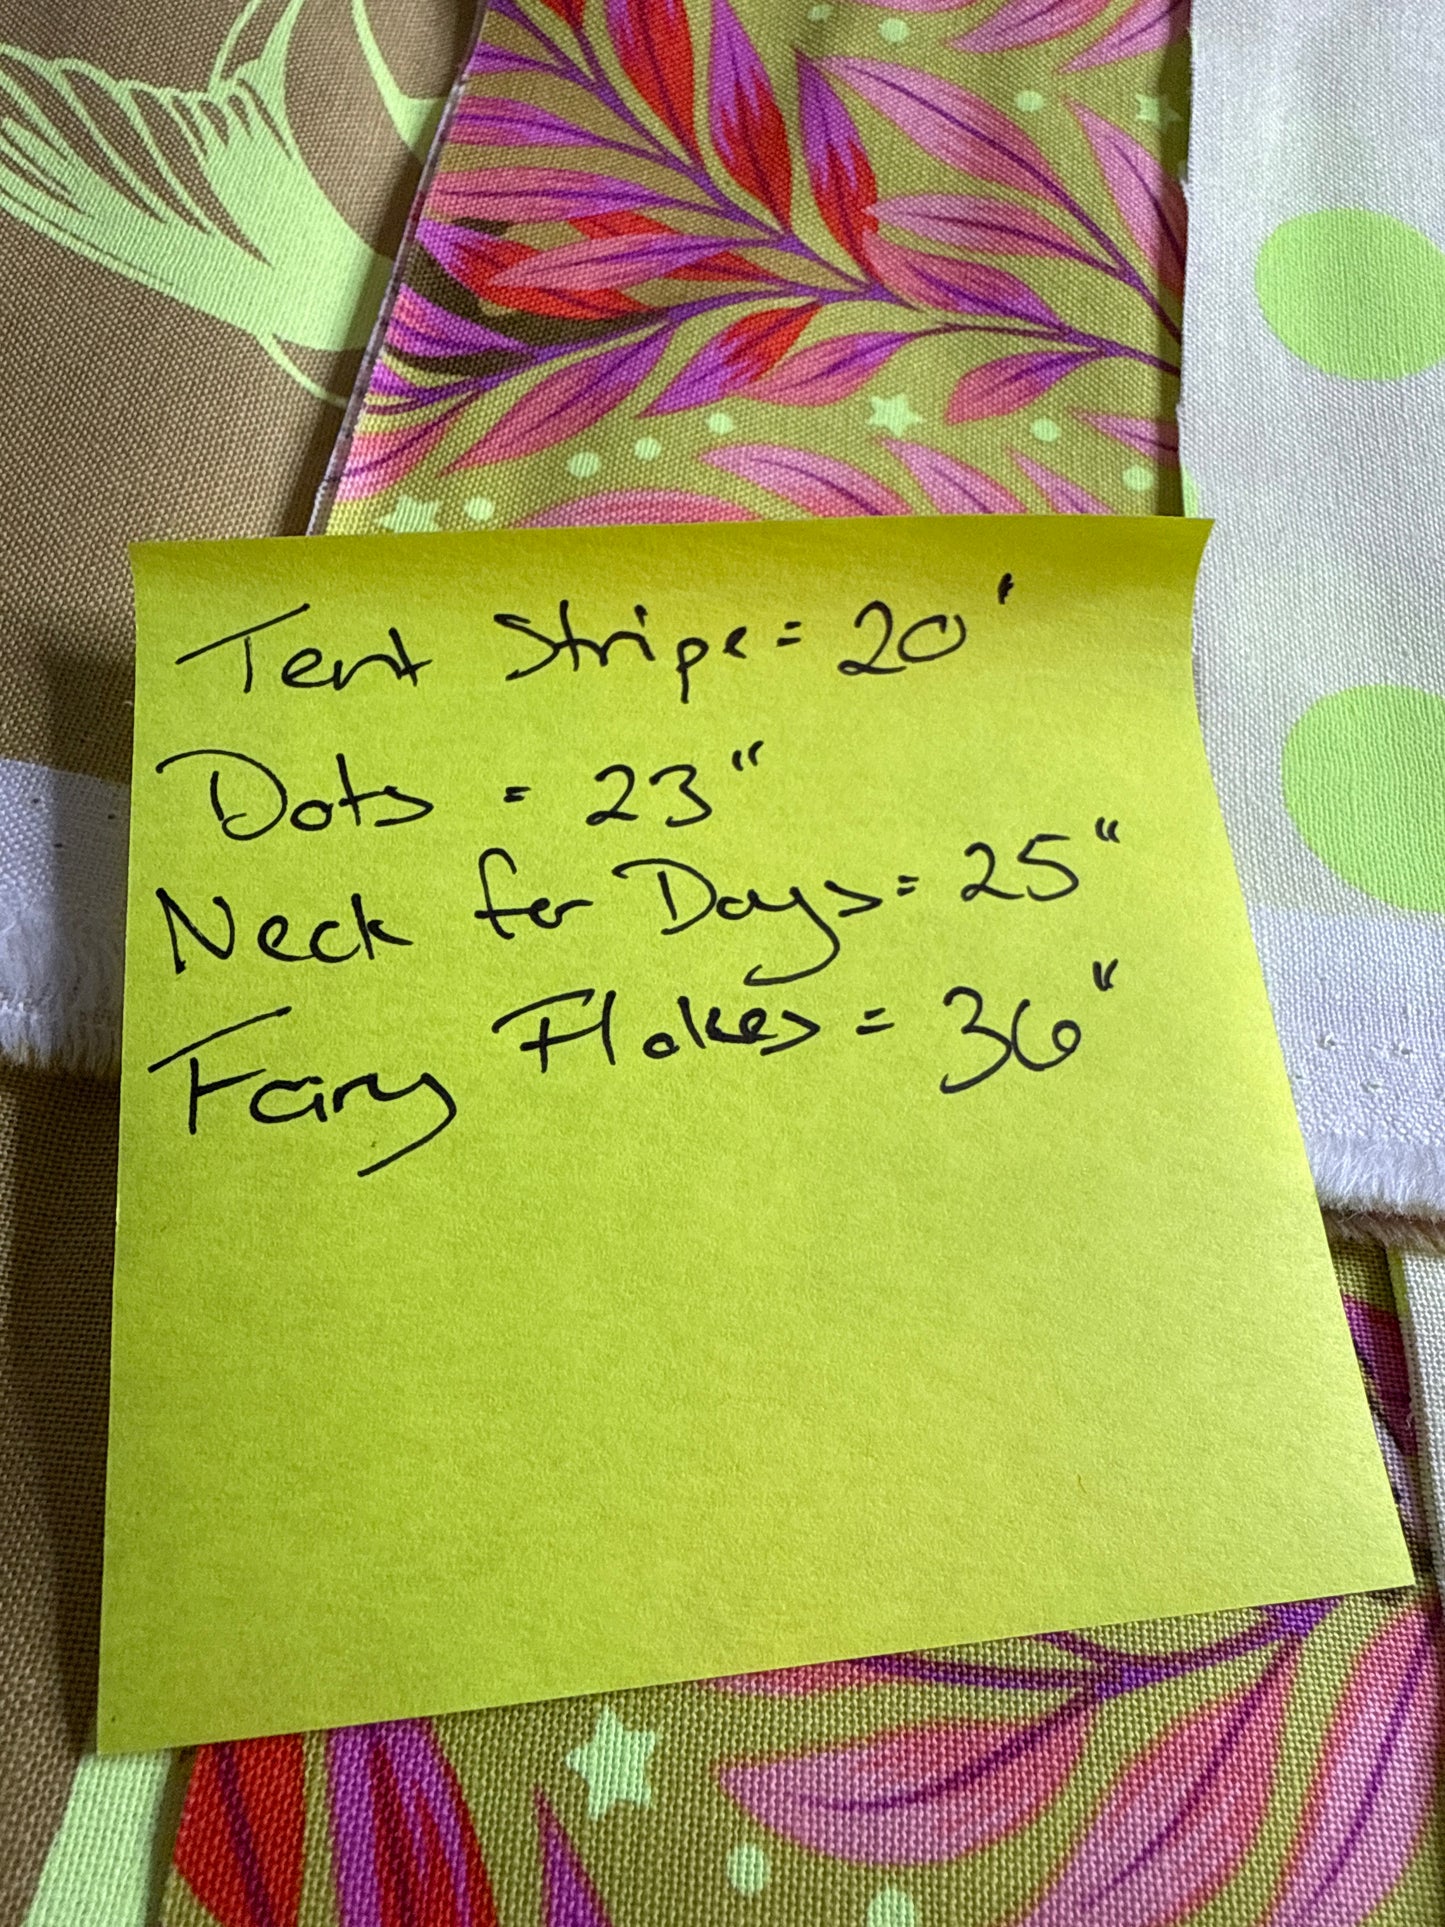 Tent Stripe = 20'
Dots = 23"
Neck for Days = 25"
Fairy Flakes = 36"